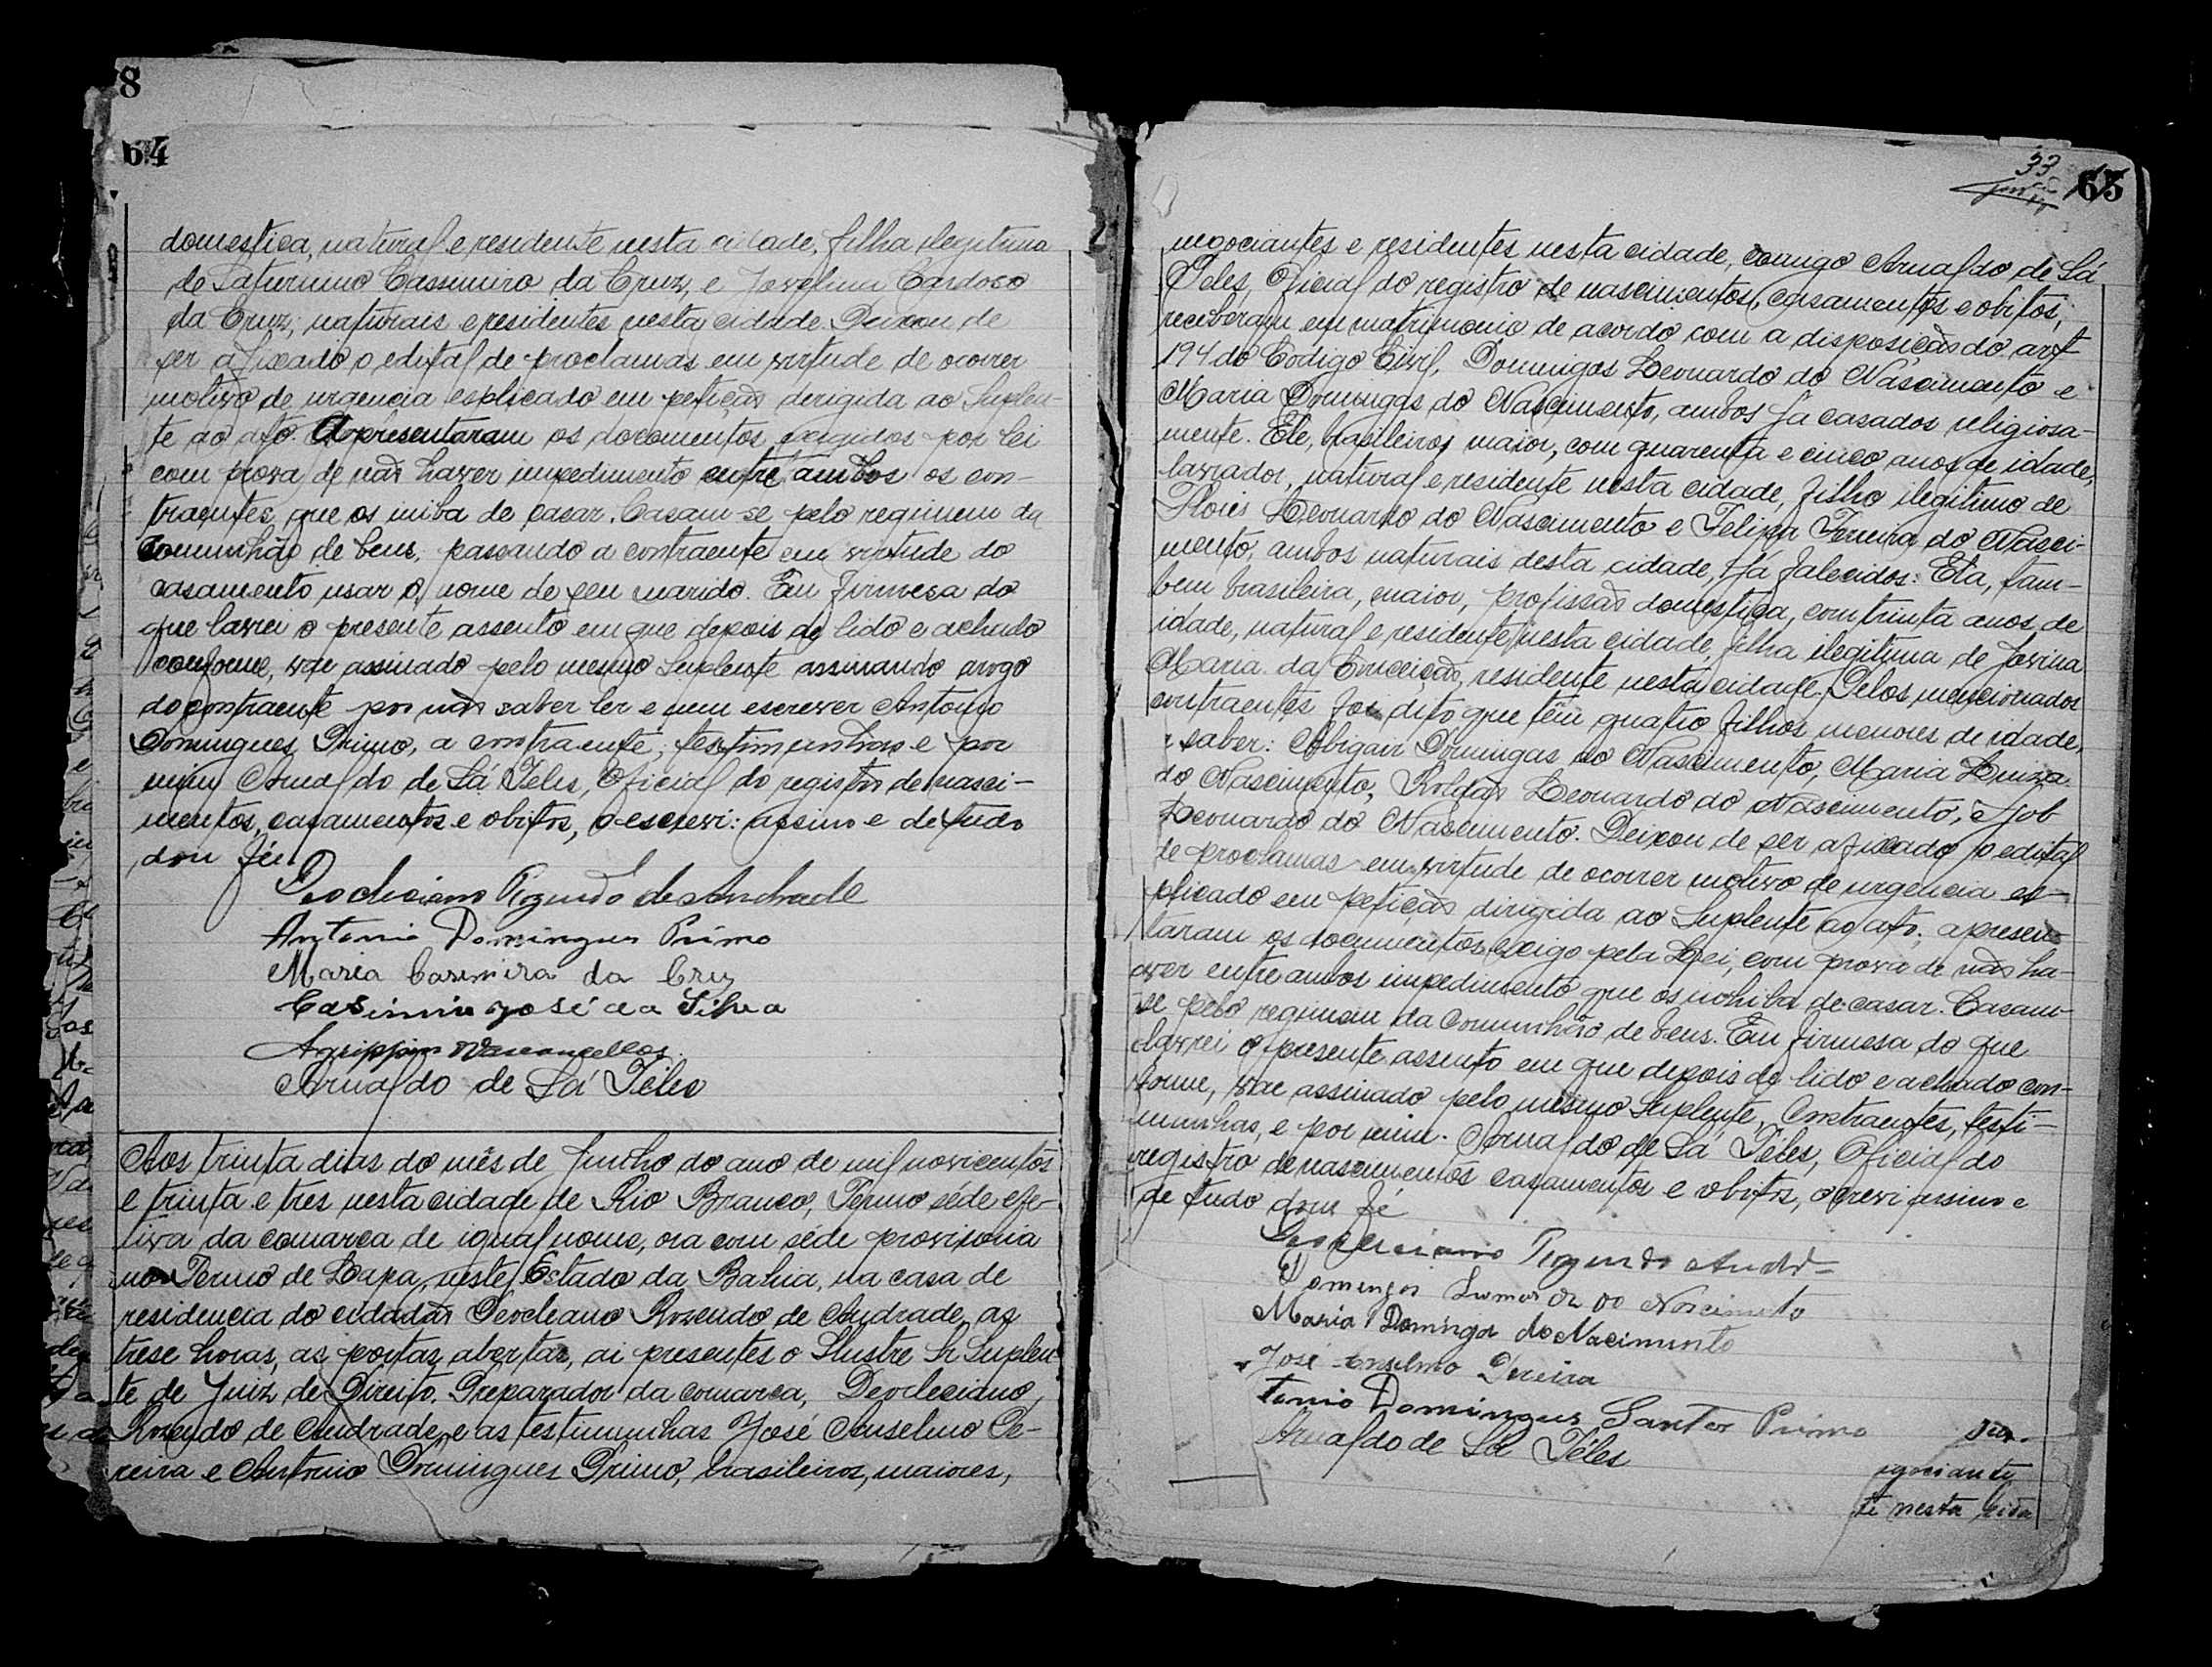 8
64
domestica, natural e residente nesta cidade, filha ilegitima
de Saturnino Cassimiro da Cruz, e Cardoso
da Cruz, naturais e residentes nesta cidade. Deixou de
ser afixado o edital de proclamas em virtude de ocorrer
motivo de urgencia esplicado em petição derigida ao Suplen-
te do ato. Apresentaram os documentos exegidos por lei
com prova de não haver impedimento entre ambos os con-
traentes que os iniba de casar. Casam-se pelo regimem da
Comunhão de bens, passando a contraente em virtude do
casamento usar o nome de seu marido. Em firmesa do
que lavrei o presente assento em que depois de lido e achado
conforme, vae assinado pelo mesmo Suplente assinando arogo
do contraente por não saber ler e nem escrever Antonio
Domingues Primo, a contraente, testimunhas e por
mim Arnaldo de Sá Teles, Oficial do registro de nasci-
mentos, casamentos e obitos, o escrevi: assino e de tudo
dou fé.
Deocleciano Rozendo de Andrade
Antonio Domingues Primo
Maria Casimira da Cruz
Casimiro José da Silva
Agrippino Vasconcellos
Arnaldo de Sá Téles
Aos trinta dias do mês de Junho do ano de mil novicentos
e trinta e tres nesta cidade de Rio Branco, Termo séde efe-
tiva da comarca de igual nome, ora com séde provisoria
no Termo de Lapa, neste Estado da Bahia, na casa de
residencia do cidadão Deocleano Rosendo de Andrade, as
trese horas, as portas abertas, ai presentes o Ilustre Sr Suplen-
te de Juiz de Direito. Preparador da comarca, Deocleciano
Rosendo de Andrade, e as testimunhas José Anselmo Pe-
reira e Antonio Domingues Primo, brasileiros, maiores,
33
65
negociantes e residentes nesta cidade, comigo Arnaldo de Sá
Teles, Oficial do registro de nascimentos, casamentos e obitos,
receberam em matrimonio de acordo com a disposição do art
194 do Codigo Civil, Domingos Leonardo do Nascimento e
Maria Domingas do Nascimento, ambos já casados religiosa-
mente. Ele, brasileiro, maior, com quarenta e cinco anos de idade,
lavrador, natural e residente nesta cidade, filho ilegitimo de
Leonardo do Nascimento e Felipa Ferreira do Nasci-
mento, ambos naturais desta cidade, já falecidos: Ela, tam-
bem brasileira, maior, profissão domestica, com trinta anos de
idade, natural e residente nesta cidade, filha ilegitima de Jovina
Maria da Conceição, residente nesta cidade. Pelos mencionados
contraentes foi dito que têm quatro filhos menores de idade,
a saber: Abigair Domingas do Nascimento, Maria Luiza
do Nascimento, Roldão Leonardo do Nascimento, e Job
Leonardo do Nascimento. Deixou de ser afixado o edital
de proclamas em virtude de ocorrer motivo de urgencia es-
plicado em petição dirigida ao Suplente do ato; apresen-
taram os documentos exigo pela Lei, com prova de não ha-
ver entre ambos impedimento que os inhiba de casar. Casam-
se pelo regimem da Comunhão de bens. Em firmesa do que
lavrei o presente assento em que depois de lido e achado con-
forme, vae assinado pelo mesmo Suplente, Contraentes, testi-
munhas, e por mim. Arnaldo de Sá Téles, Oficial do
registro de nascimentos casamentos e obitos, o crevi assino e
de tudo dou fé
Deocleciano Rozendo Andr
Domingos do Nascimento
Maria Domingas do Nacimento
José Anselmo Pereira
tonio Domingues Santos Primo
Arnaldo de Sá Téles
gociante
te nesta cida